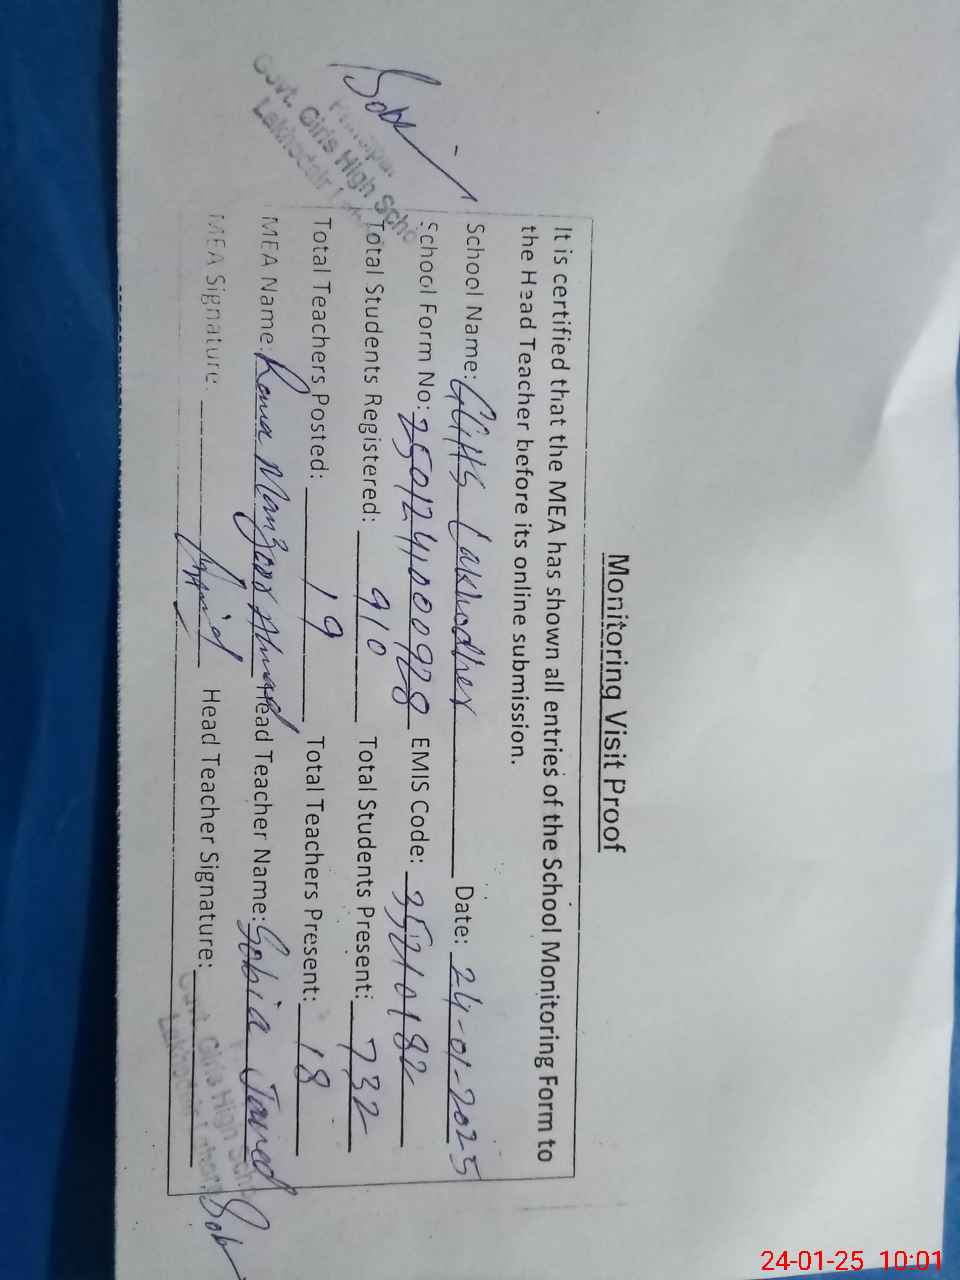 Monitoring Visit Proof
It is certified that the MEA has shown all entries of the School Monitoring Form to
the Head Teacher before its online submission.
School Name: GGHS Lakhodher Date: 24-01-2025
School Form No: 2501241000928 EMIS Code: 35210182
Total Students Registered: 910 Total Students Present: 732
Total Teachers Posted: 19 Total Teachers Present: 18
MEA Name: Rana Manzoor Ahmad Head Teacher Name: Sobia Javed
MEA Signature: Head Teacher Signature:
Principal
Govt. Girls High Scho
Lakhodair
Govt. Girls High Sch
24-01-25 10:01